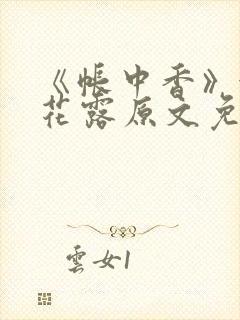 《帐中香》
花露原文免
云女1